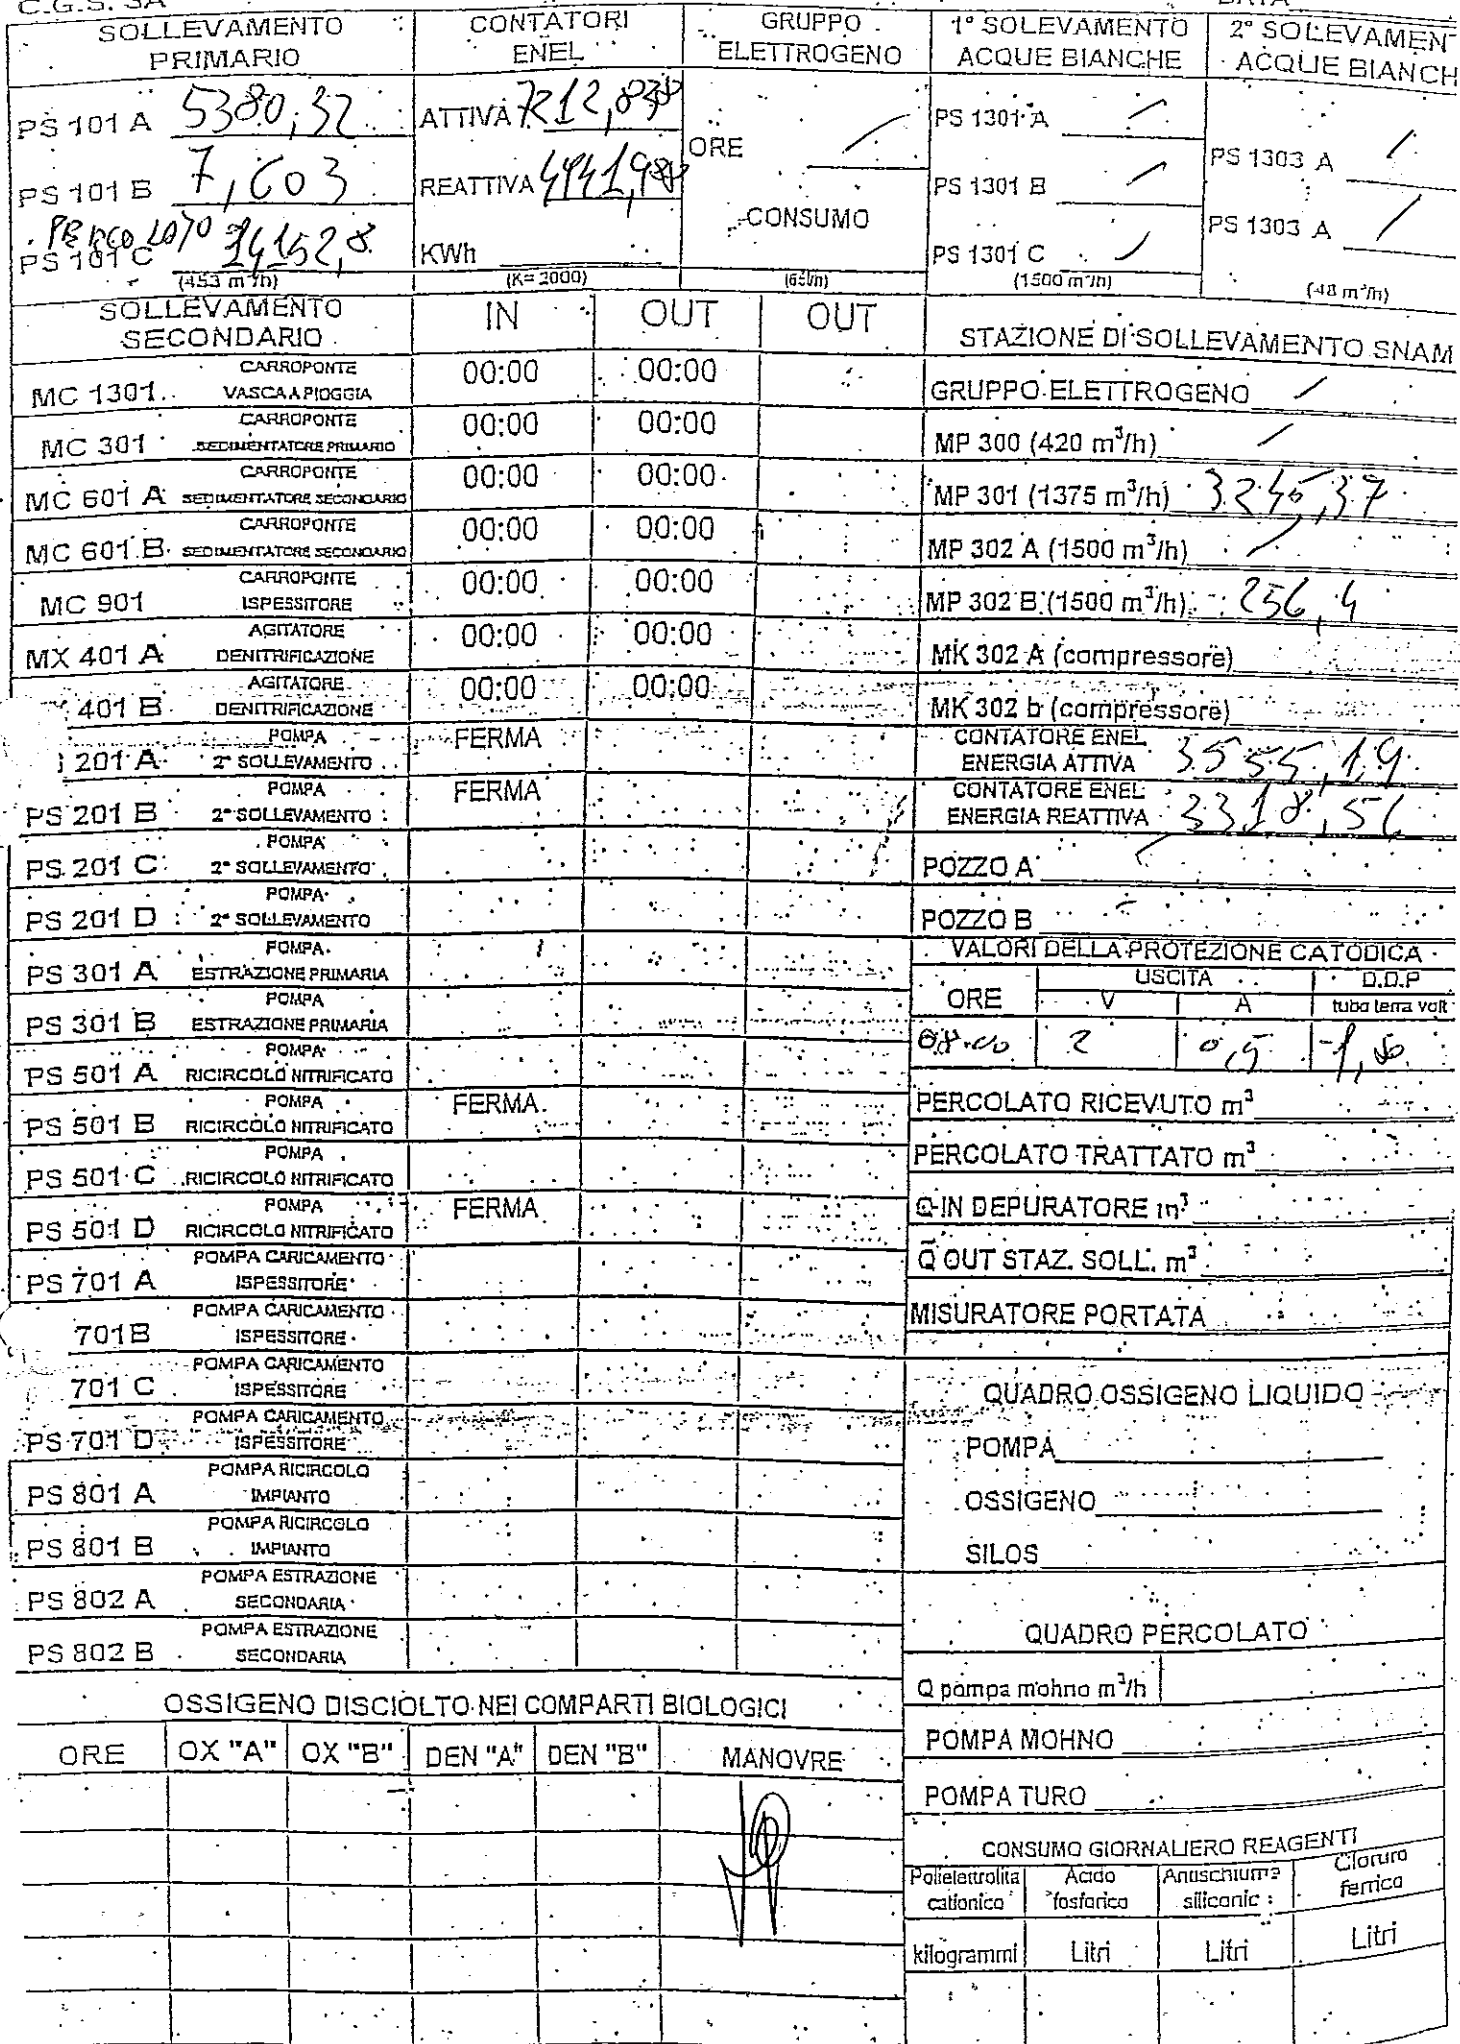 C.G.S. SA
SOLLEVAMENTO PRIMARIO
PS 101 A 5380,32
PS 101 B 7,603
PERCOLATO
PS 101 C 14152,8
(453 m³/h)
CONTATORI ENEL
ATTIVA 7212,838
REATTIVA
KWh
(K= 2000)
GRUPPO ELETTROGENO
ORE /
CONSUMO
(65l/h)
1° SOLEVAMENTO ACQUE BIANCHE
PS 1301 A /
PS 1301 B /
PS 1301 C /
(1500 m³/h)
2° SOLEVAMEN
ACQUE BIANCH
PS 1303 A /
PS 1303 A /
(48 m³/h)
SOLLEVAMENTO SECONDARIO IN OUT OUT
MC 1301 CARROPONTE VASCA A PIOGGIA 00:00 00:00
MC 301 CARROPONTE SEDIMENTATORE PRIMARIO 00:00 00:00
MC 601 A CARROPONTE SEDIMENTATORE SECONDARIO 00:00 00:00
MC 601 B CARROPONTE SEDIMENTATORE SECONDARIO 00:00 00:00
MC 901 CARROPONTE ISPESSITORE 00:00 00:00
MX 401 A AGITATORE DENITRIFICAZIONE 00:00 00:00
401 B AGITATORE DENITRIFICAZIONE 00:00 00:00
201 A POMPA 2° SOLLEVAMENTO FERMA
PS 201 B POMPA 2° SOLLEVAMENTO FERMA
PS 201 C POMPA 2° SOLLEVAMENTO
PS 201 D POMPA 2° SOLLEVAMENTO
PS 301 A POMPA ESTRAZIONE PRIMARIA
PS 301 B POMPA ESTRAZIONE PRIMARIA
PS 501 A POMPA RICIRCOLO NITRIFICATO
PS 501 B POMPA RICIRCOLO NITRIFICATO FERMA
PS 501 C POMPA RICIRCOLO NITRIFICATO
PS 501 D POMPA RICIRCOLO NITRIFICATO FERMA
PS 701 A POMPA CARICAMENTO ISPESSITORE
701B POMPA CARICAMENTO ISPESSITORE
701 C POMPA CARICAMENTO ISPESSITORE
PS 701 D POMPA CARICAMENTO ISPESSITORE
PS 801 A POMPA RICIRCOLO IMPIANTO
PS 801 B POMPA RICIRCOLO IMPIANTO
PS 802 A POMPA ESTRAZIONE SECONDARIA
PS 802 B POMPA ESTRAZIONE SECONDARIA
OSSIGENO DISCIOLTO NEI COMPARTI BIOLOGICI
ORE OX "A" OX "B" DEN "A" DEN "B" MANOVRE
STAZIONE DI SOLLEVAMENTO SNAM
GRUPPO ELETTROGENO /
MP 300 (420 m³/h) /
MP 301 (1375 m³/h) 3245,37
MP 302 A (1500 m³/h) /
MP 302 B (1500 m³/h) 256,4
MK 302 A (compressore)
MK 302 b (compressore)
CONTATORE ENEL ENERGIA ATTIVA 3555,19
CONTATORE ENEL ENERGIA REATTIVA 3318,56
POZZO A
POZZO B
VALORI DELLA PROTEZIONE CATODICA
ORE USCITA D.D.P
V A tubo terra volt
08.00 2 0,5 -1,50
PERCOLATO RICEVUTO m³
PERCOLATO TRATTATO m³
Q IN DEPURATORE m³
Q OUT STAZ. SOLL. m³
MISURATORE PORTATA
QUADRO OSSIGENO LIQUIDO
POMPA
OSSIGENO
SILOS
QUADRO PERCOLATO
Q pompa mohno m³/h
POMPA MOHNO
POMPA TURO
CONSUMO GIORNALIERO REAGENTI
Polielettrolita cationico Acido fosforico Antischiuma siliconic Cloruro ferrico
kilogrammi Litri Litri Litri